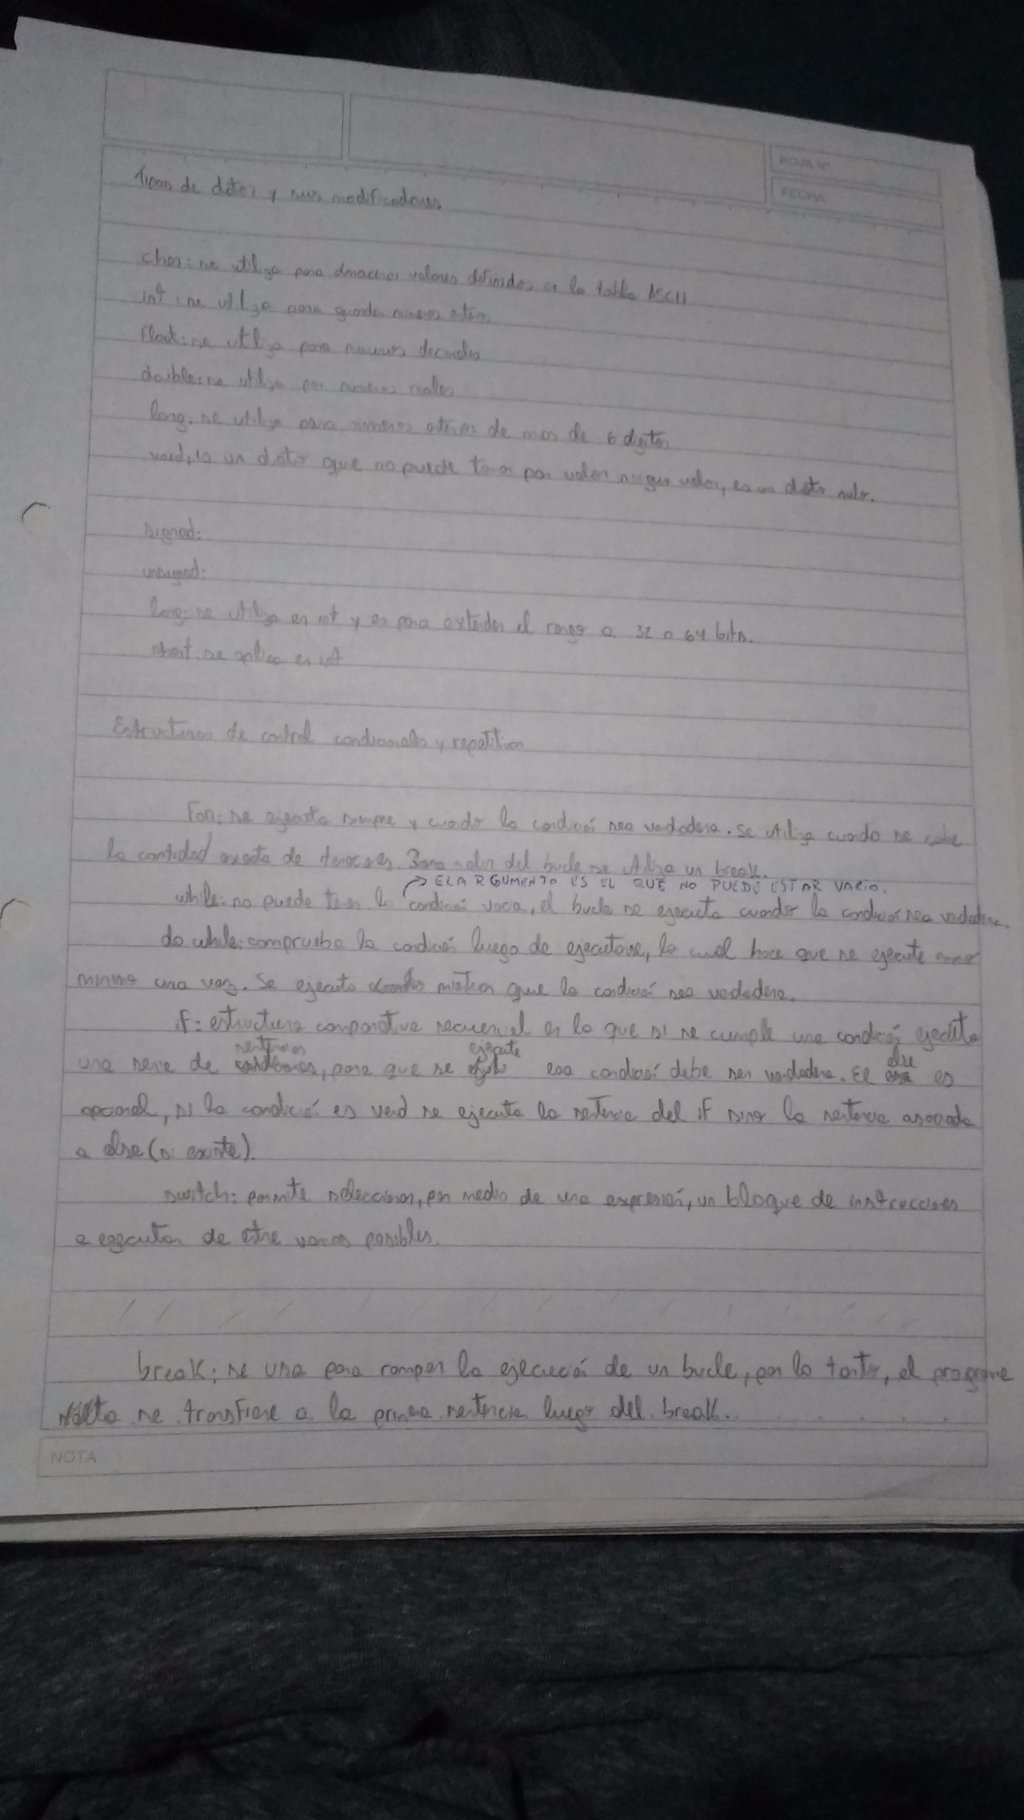 HOJA Nº
FECHA
Tipos de datos y sus modificadores.
char: se utiliza para almacenar valores definidos en la tabla ASCII
int: se utiliza para guardar numeros enteros
float: se utiliza para numeros decimales
double: se utiliza para numeros reales
long: se utiliza para numeros enteros de mas de 6 digitos
void: es un dato que no puede tomar por valor ningun valor, es un dato nulo.
signed:
unsigned:
long: se utiliza en int y es para extender el rango a 32 o 64 bits.
short: se aplica en int
Estructuras de control condicionales y repetitivas
For: se ejecuta siempre y cuando la condición sea verdadera. Se utiliza cuando se sabe
la cantidad exacta de iteraciones. Para salir del bucle se utiliza un break.
→ EL ARGUMENTO ES EL QUE NO PUEDE ESTAR VACIO.
while: no puede tener la condición vacia, el bucle se ejecuta cuando la condición sea verdadera.
do while: comprueba la condición luego de ejecutarse, lo cual hace que se ejecute como
minimo una vez. Se ejecuta mientras que la condición sea verdadera.
if: estructura comparativa secuencial en la que si se cumple una condición ejecuta
sentencias ejecute else
una serie de , para que se esa condición debe ser verdadera. El es
opcional, si la condición es verd se ejecuta la sentencia del if sino la sentencia asociada
a else (si existe).
switch: permite seleccionar, por medio de una expresión, un bloque de instrucciones
a ejecutar de entre varios posibles.
break: se usa para romper la ejecución de un bucle, por lo tanto, el programa
salta se transfiere a la primera sentencia luego del break.
NOTA